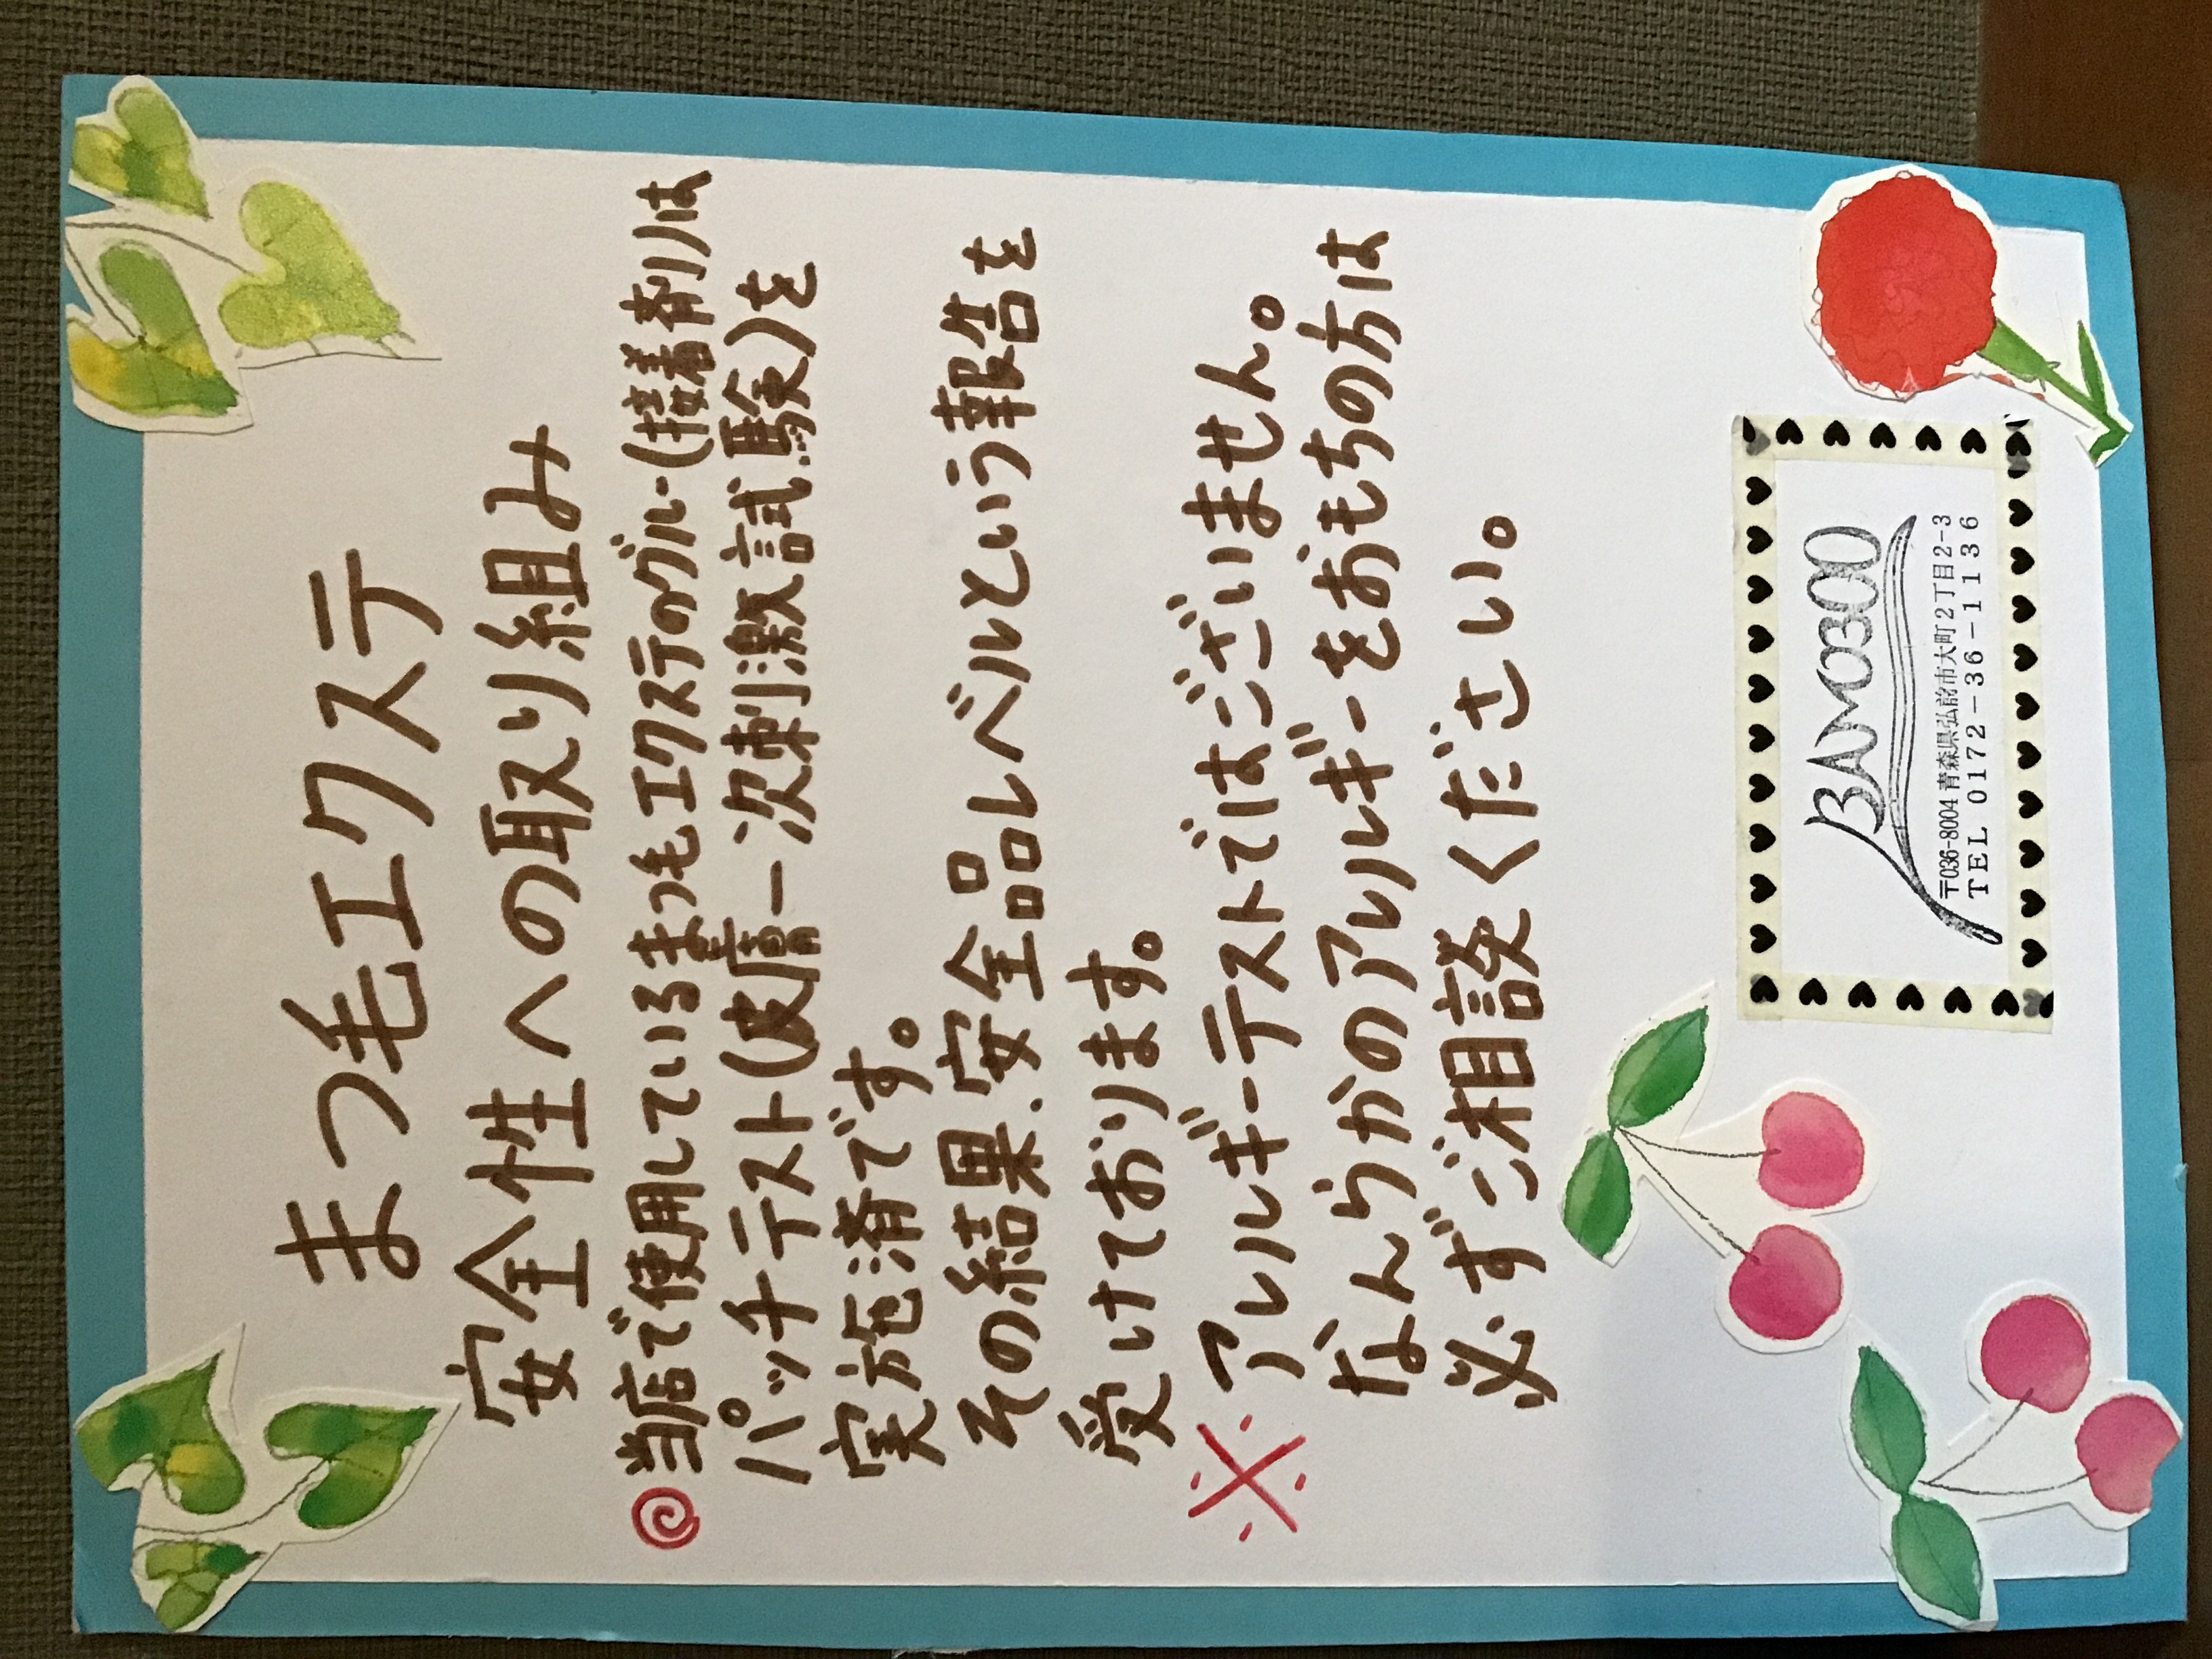 まつ毛エクステ
安全性への取り組み
◎当店で使用しているまつ毛エクステのグルー(接着剤)は
パッチテスト(皮膚一次刺激試験)を
実施済です。
その結果、安全品レベルという報告を
受けております。
※アレルギーテストではございません。
なんらかのアレルギーをおもちの方は
必ずご相談ください。
BAMOSOO
〒036-8004 青森県弘前市大町2丁目2-3
TEL 0172-36-1136